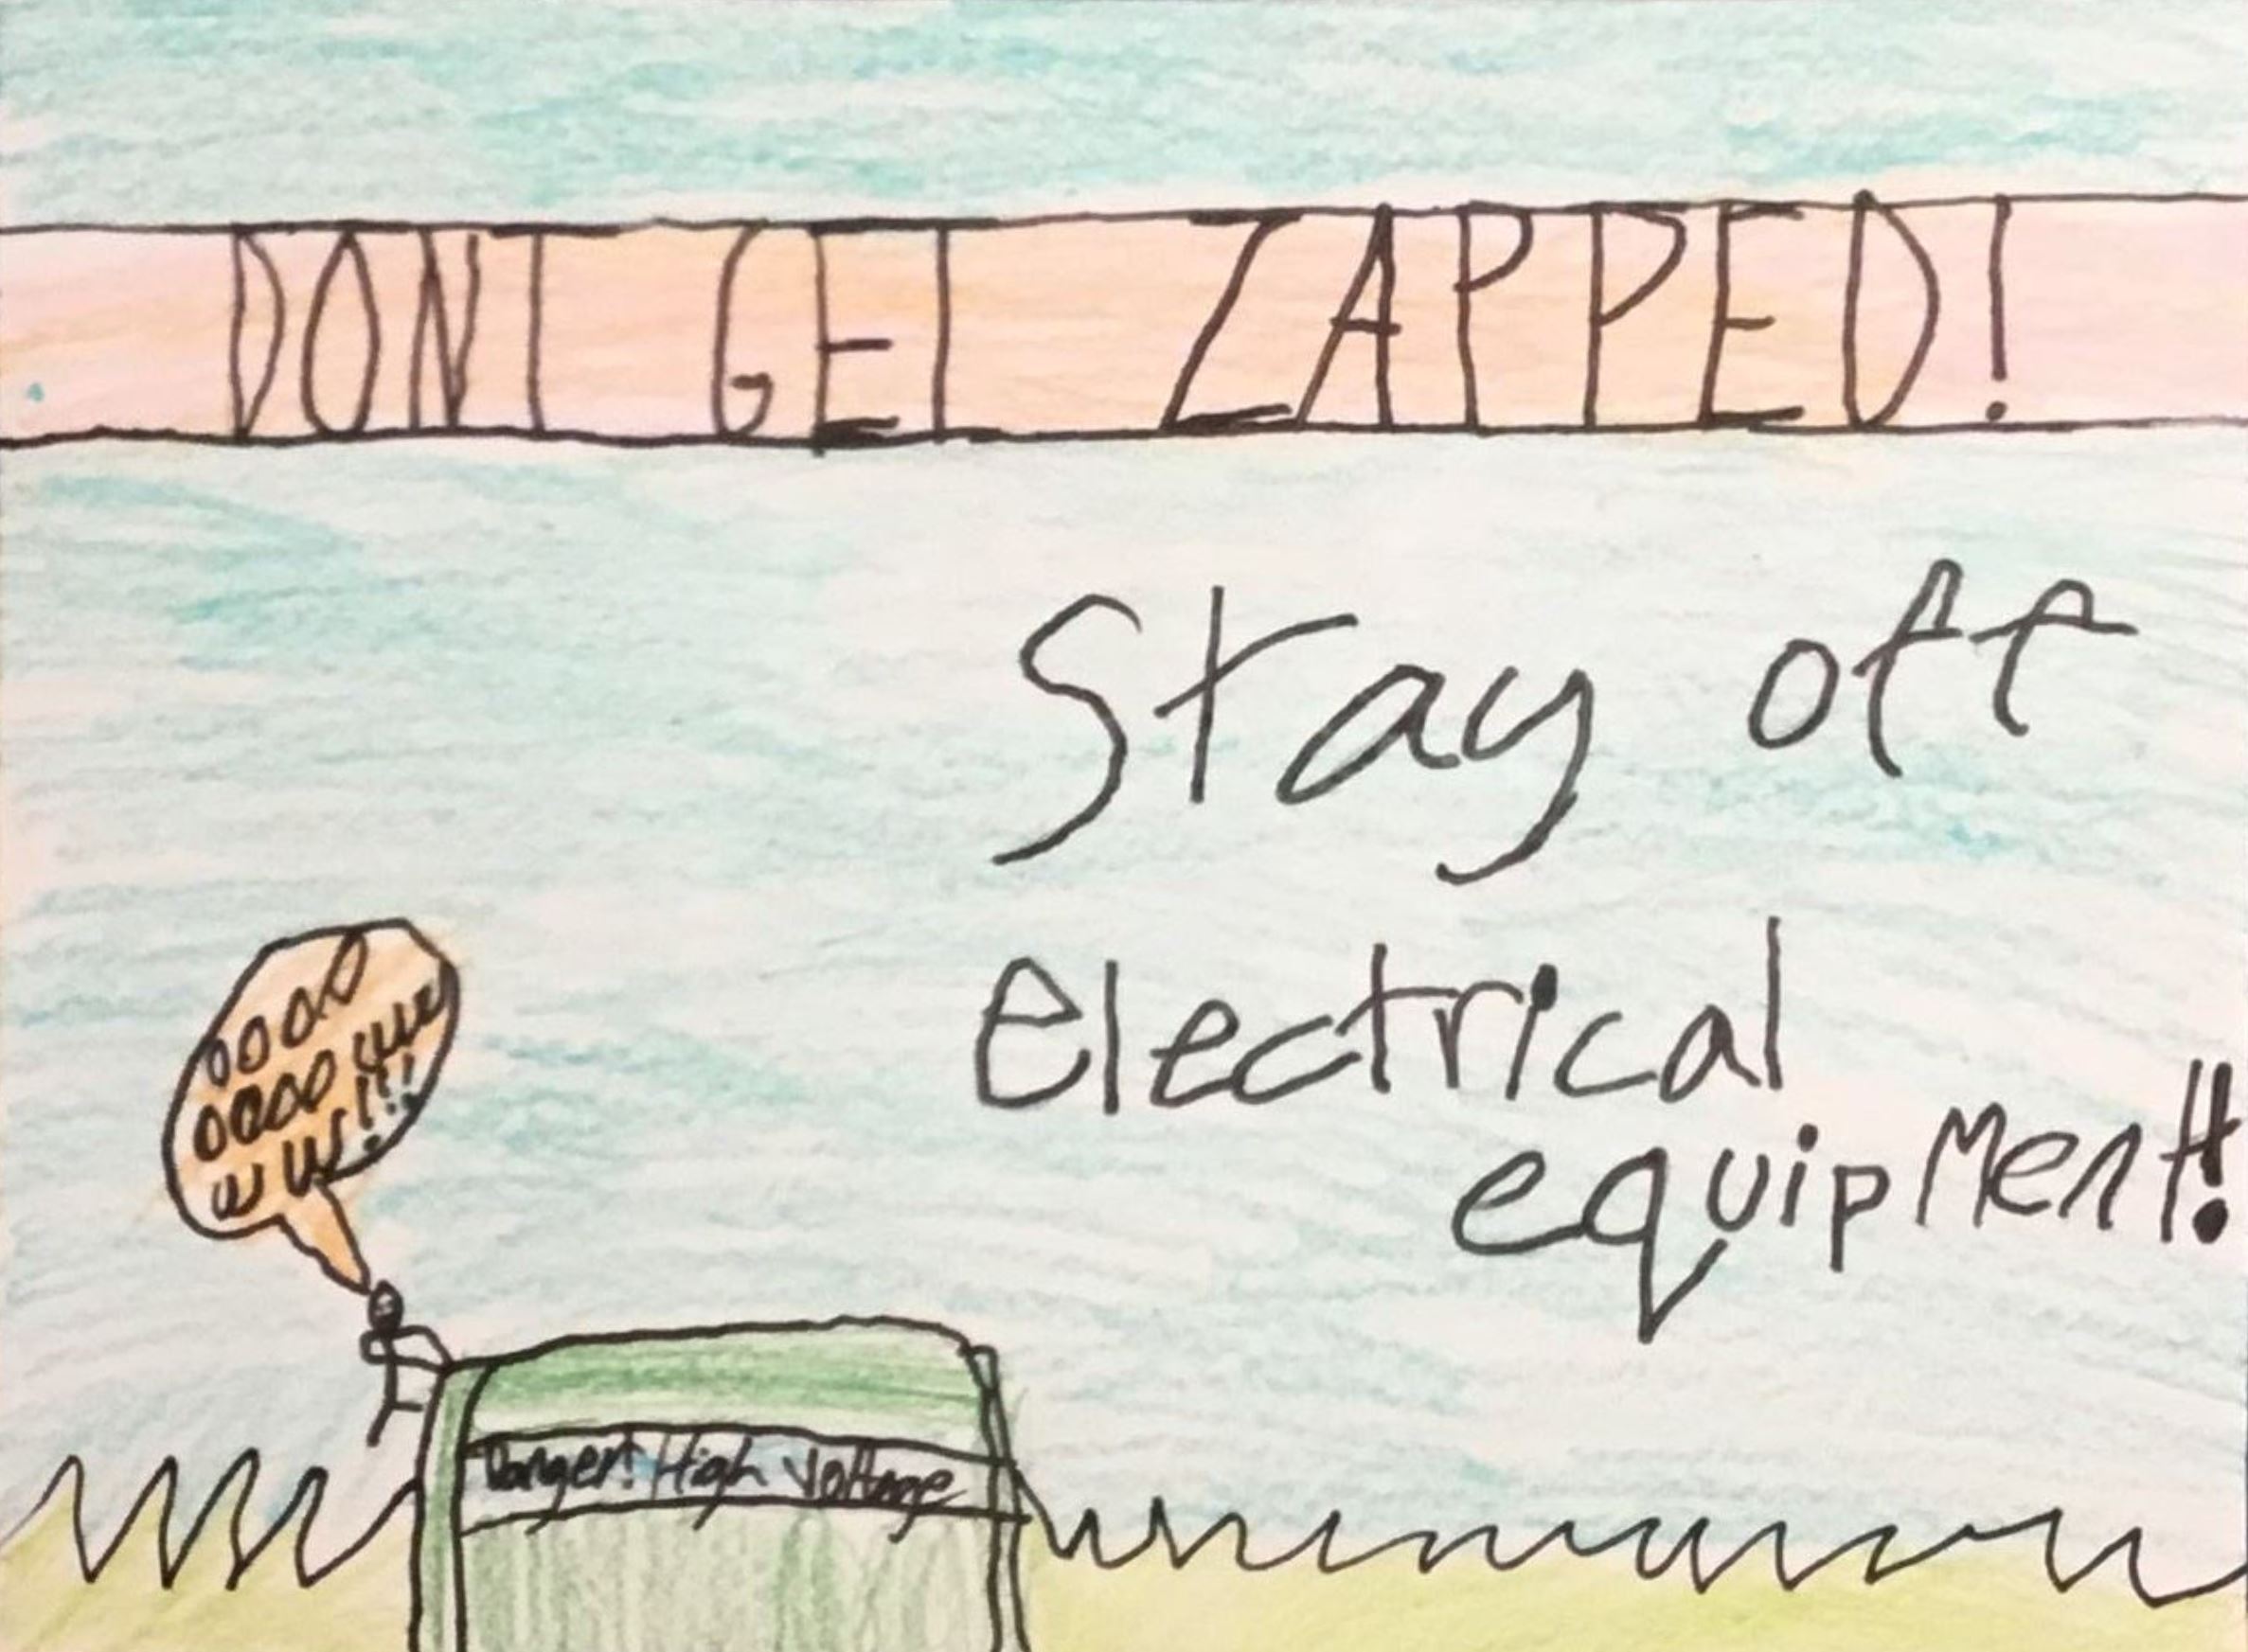 DONT GET ZAPPED!
Stay off
Electrical
equipment!!
Danger! High Voltage